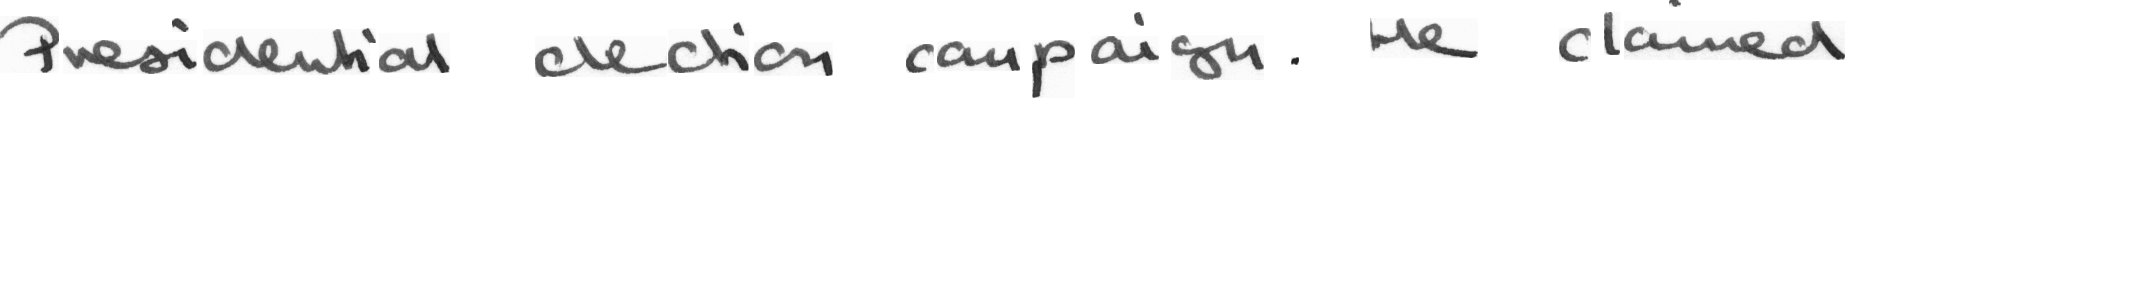 Presidential election campaign. He claimed